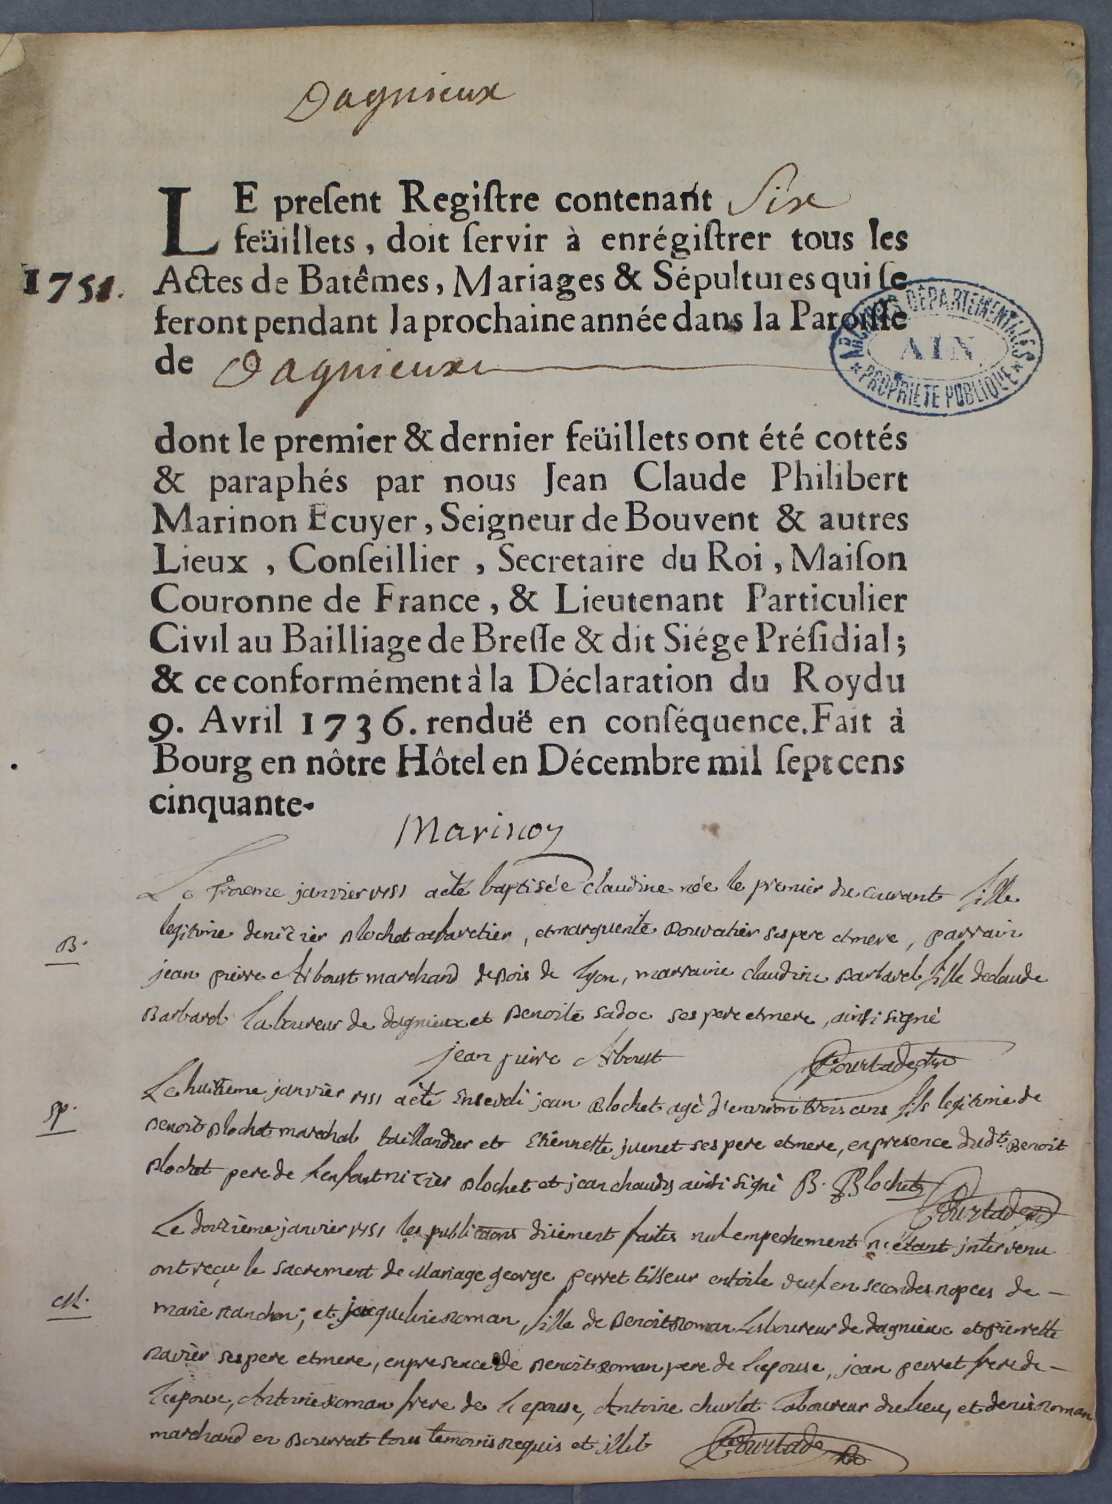 Dagnieux
LE present Registre contenant Six
feüillets, doit servir à enrégistrer tous les
1751. Actes de Batêmes, Mariages & Sépultures qui se
feront pendant la prochaine année dans la Paroisse
de Dagnieux
ARCHIVES DÉPARTEMENTALES
AIN
* PROPRIÉTÉ PUBLIQUE *
dont le premier & dernier feüillets ont été cottés
& paraphés par nous Jean Claude Philibert
Marinon Ecuyer, Seigneur de Bouvent & autres
Lieux, Conseillier, Secretaire du Roi, Maison
Couronne de France, & Lieutenant Particulier
Civil au Bailliage de Bresse & dit Siége Présidial;
& ce conformément à la Déclaration du Roy du
9. Avril 1736. renduë en conséquence. Fait à
Bourg en nôtre Hôtel en Décembre mil sept cens
cinquante.
Marinon
Le janvier 1751 a été baptisée claudine née le premier du courant fille
B. legitime de Blochet et marguerite ses pere et mere, parrain
jean pierre Arboust marchand de bois de Lyon, marraine claudine Barbaret fille de claude
Barbaret Laboureur de dagnieux et Benoite sadoc ses pere et mere, ainsi signé
jean pierre Arboust Courtade
Le huitieme janvier 1751 a été Enseveli jean Blochet agé d'environ trois ans fils legitime de
Sp. Benoit Blochet marechal taillandier et Etiennette juenet ses pere et mere, en presence dudt Benoit
Blochet pere de Lenfant Blochet et jean ainsi signé B. Blochet Courtade
Le douzième janvier 1751 les publications düement faites nul empechement n'étant intervenu
ont reçu le sacrement de Mariage george perret tisseur en toile veuf en secondes nopces de –
M. marie ; et jacqueline Roman, fille de Benoit Roman Laboureur de dagnieux et pierrette
ses pere et mere, en presence de Benoit Roman pere de Lepouse, jean perret frere de –
Lepoux, Antoine Roman frere de Lepouse, Antoine charlet Laboureur du lieu, et denis Roman
marchand en tous temoins Requis et illit Courtade